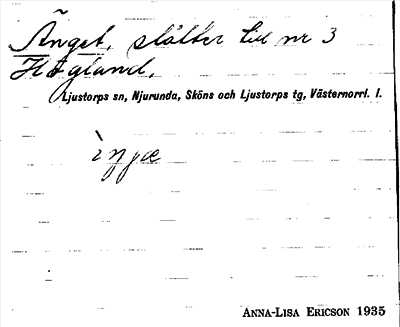 Änget, slåtter till nr 3
Högland,
Ljustorps sn, Njurunda, Sköns och Ljustorps tg, Västernorrl. l.
ANNA-LISA ERICSON 1935